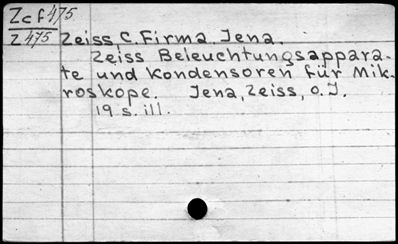 Zcf475
Z475 Zeiss C. Firma. Jena.
Zeiss Beleuchtungsappara-
te und Kondensoren für Mik-
roskope. Jena, Zeiss, o.J.
19 s. ill.